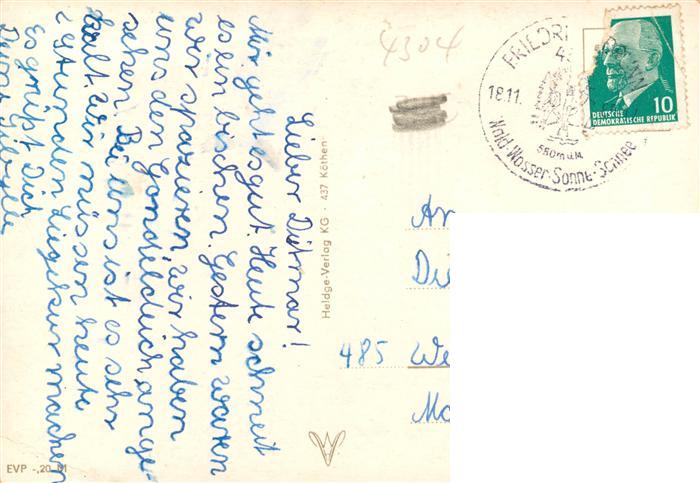 Lieber Ditmar!
Mir geht es gut. Heute schneit
es ein bischen. Gestern waren
wir spazieren, wir haben
uns den Gondelteich ange-
sehen. Bei uns ist es sehr
kalt. Wir müssen heute
2 Stunden Liegekur machen
Es grüßt Dich
Deine Sibylle
Heldge-Verlag KG · 437 Köthen
EVP -,20 M
4304
FRIEDRI
43
18.11.
550 m ü.M.
Wald-Wasser-Sonne-Schnee
10
DEUTSCHE
DEMOKRATISCHE REPUBLIK
An
Di
485 We